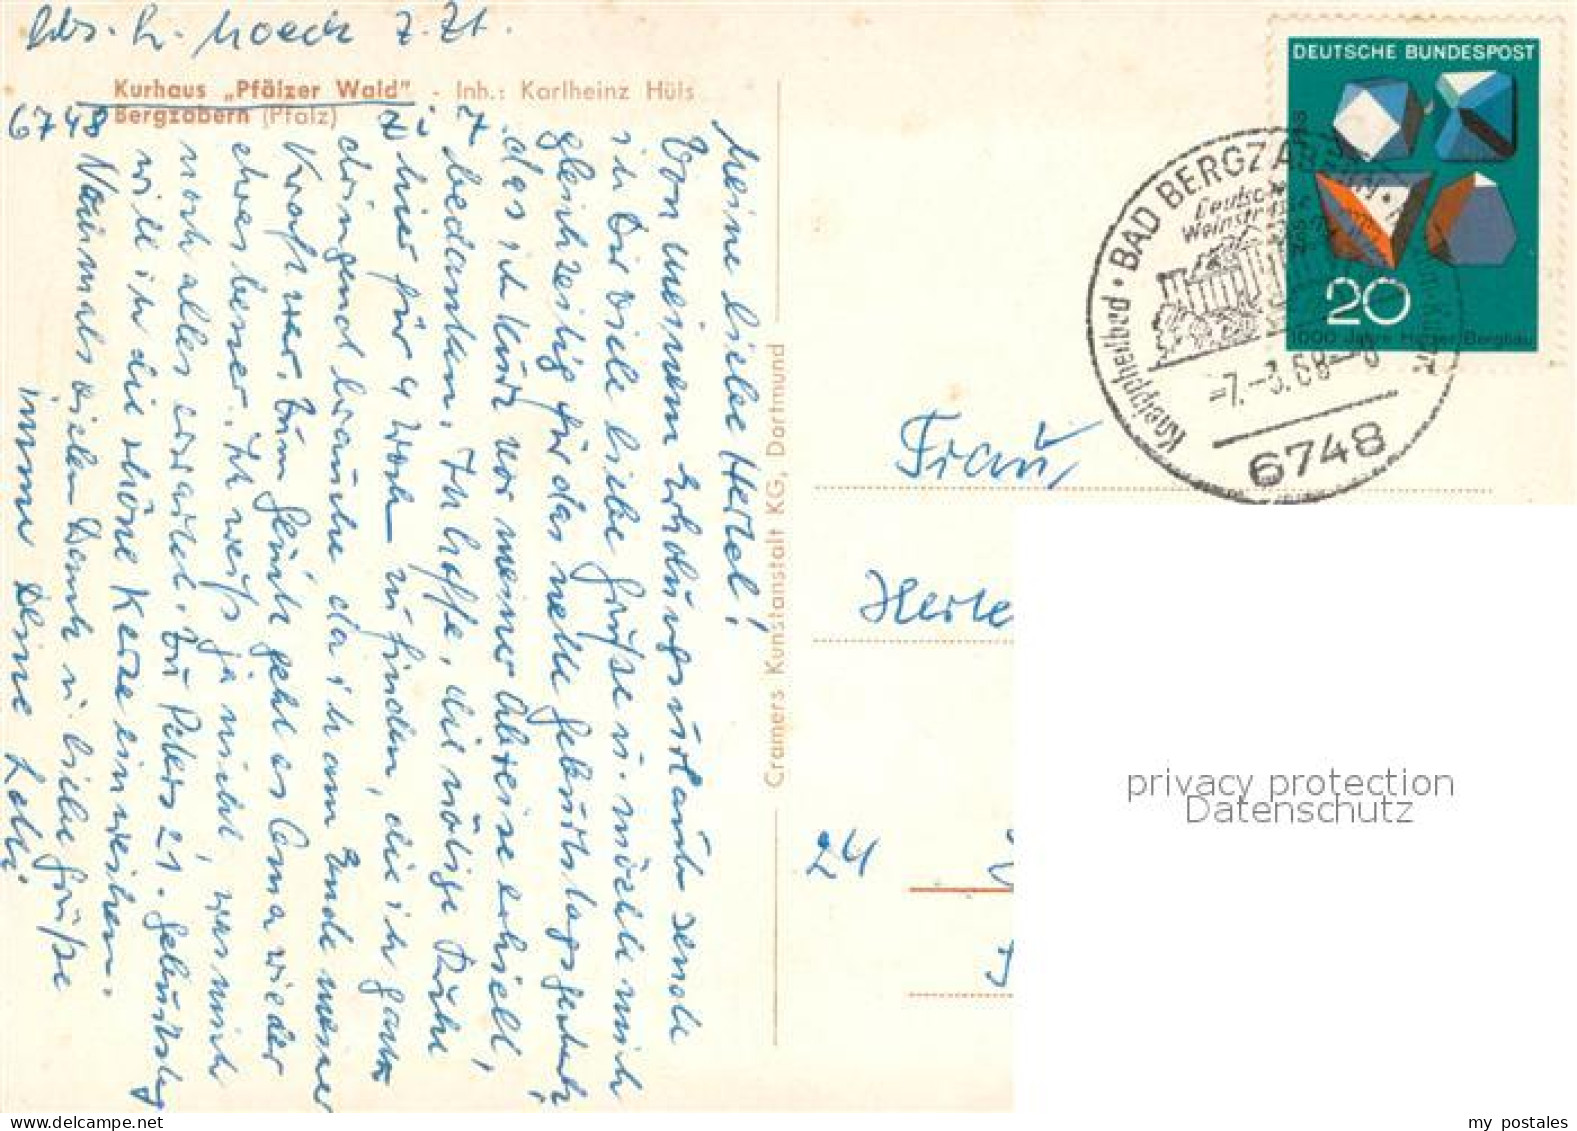 Abs. L. Moeck z. Zt.
Kurhaus „Pfälzer Wald" - Inh.: Karlheinz Hüls
6748 Bergzabern (Pfalz)
Zi 7
Meine liebe Hertel!
Von meinem Erholungsurlaub sende
ich Dir viele liebe Grüße u. möchte mich
gleichzeitig für das nette Geburtstagsgeschenk,
das ich kurz vor meiner Abreise erhielt,
bedanken. Ich hoffe, die nötige Ruhe
hier für 4 Woch. zu finden, die ich ganz
dringend brauche da ich am Ende meiner
Kraft war. Zum Glück geht es Oma wieder
etwas besser. Ich weiß ja nicht, was mich
noch alles erwartet. Zu Peters 21. Geburtstag
will ich die schöne Kerze einweihen.
Nochmals vielen Dank u. liebe Grüße
immer Deine Lotti
Cramers Kunstanstalt KG, Dortmund
DEUTSCHE BUNDESPOST
20
1000 Jahre Harzer Bergbau
Kneippheilbad · BAD BERGZABERN ·
Deutsche
Weinstraße
-7.-3.68-
6748
Frau
Herte
24
privacy protection
Datenschutz
my postales